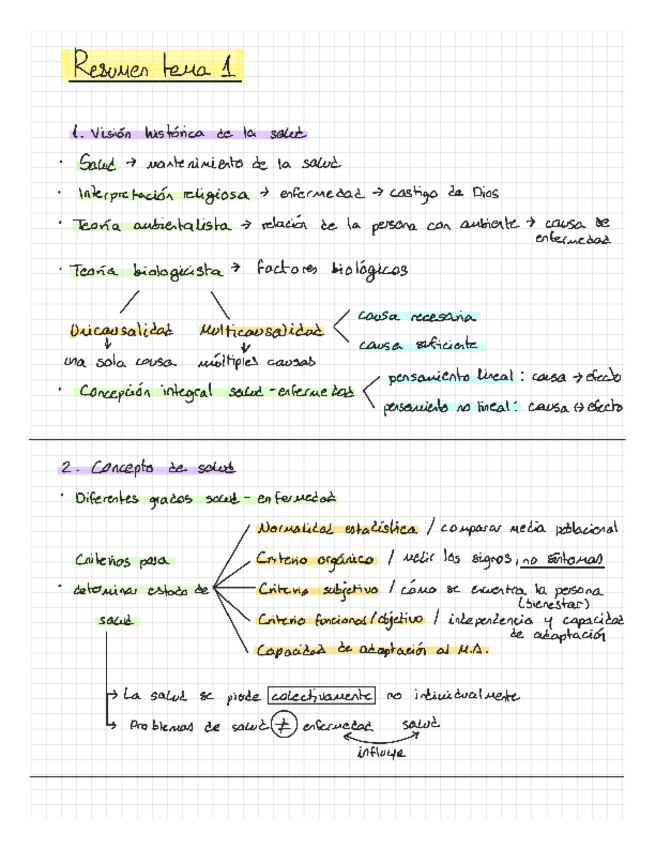 Resumen tema 1
1. Visión histórica de la salud
· Salud → mantenimiento de la salud
· Interpretación religiosa → enfermedad → castigo de Dios
· Teoría ambientalista → relación de la persona con ambiente → causa de
enfermedad
· Teoría biologicista → factores biológicos
Unicausalidad Multicausalidad
causa necesaria
causa suficiente
una sola causa múltiples causas
· Concepción integral salud-enfermedad
pensamiento lineal : causa → efecto
pensamiento no lineal : causa ↔ efecto
2. Concepto de salud
· Diferentes grados salud - enfermedad
· Criterios para
determinar estado de
salud
Normalidad estadística / comparar media poblacional
Criterio orgánico / medir los signos, no síntomas
Criterio subjetivo / cómo se encuentra la persona
(bienestar)
Criterio funcional/objetivo / independencia y capacidad
de adaptación
Capacidad de adaptación al M.A.
→ La salud se pierde colectivamente no individualmente
→ Problemas de salud ≠ enfermedad salud
influye